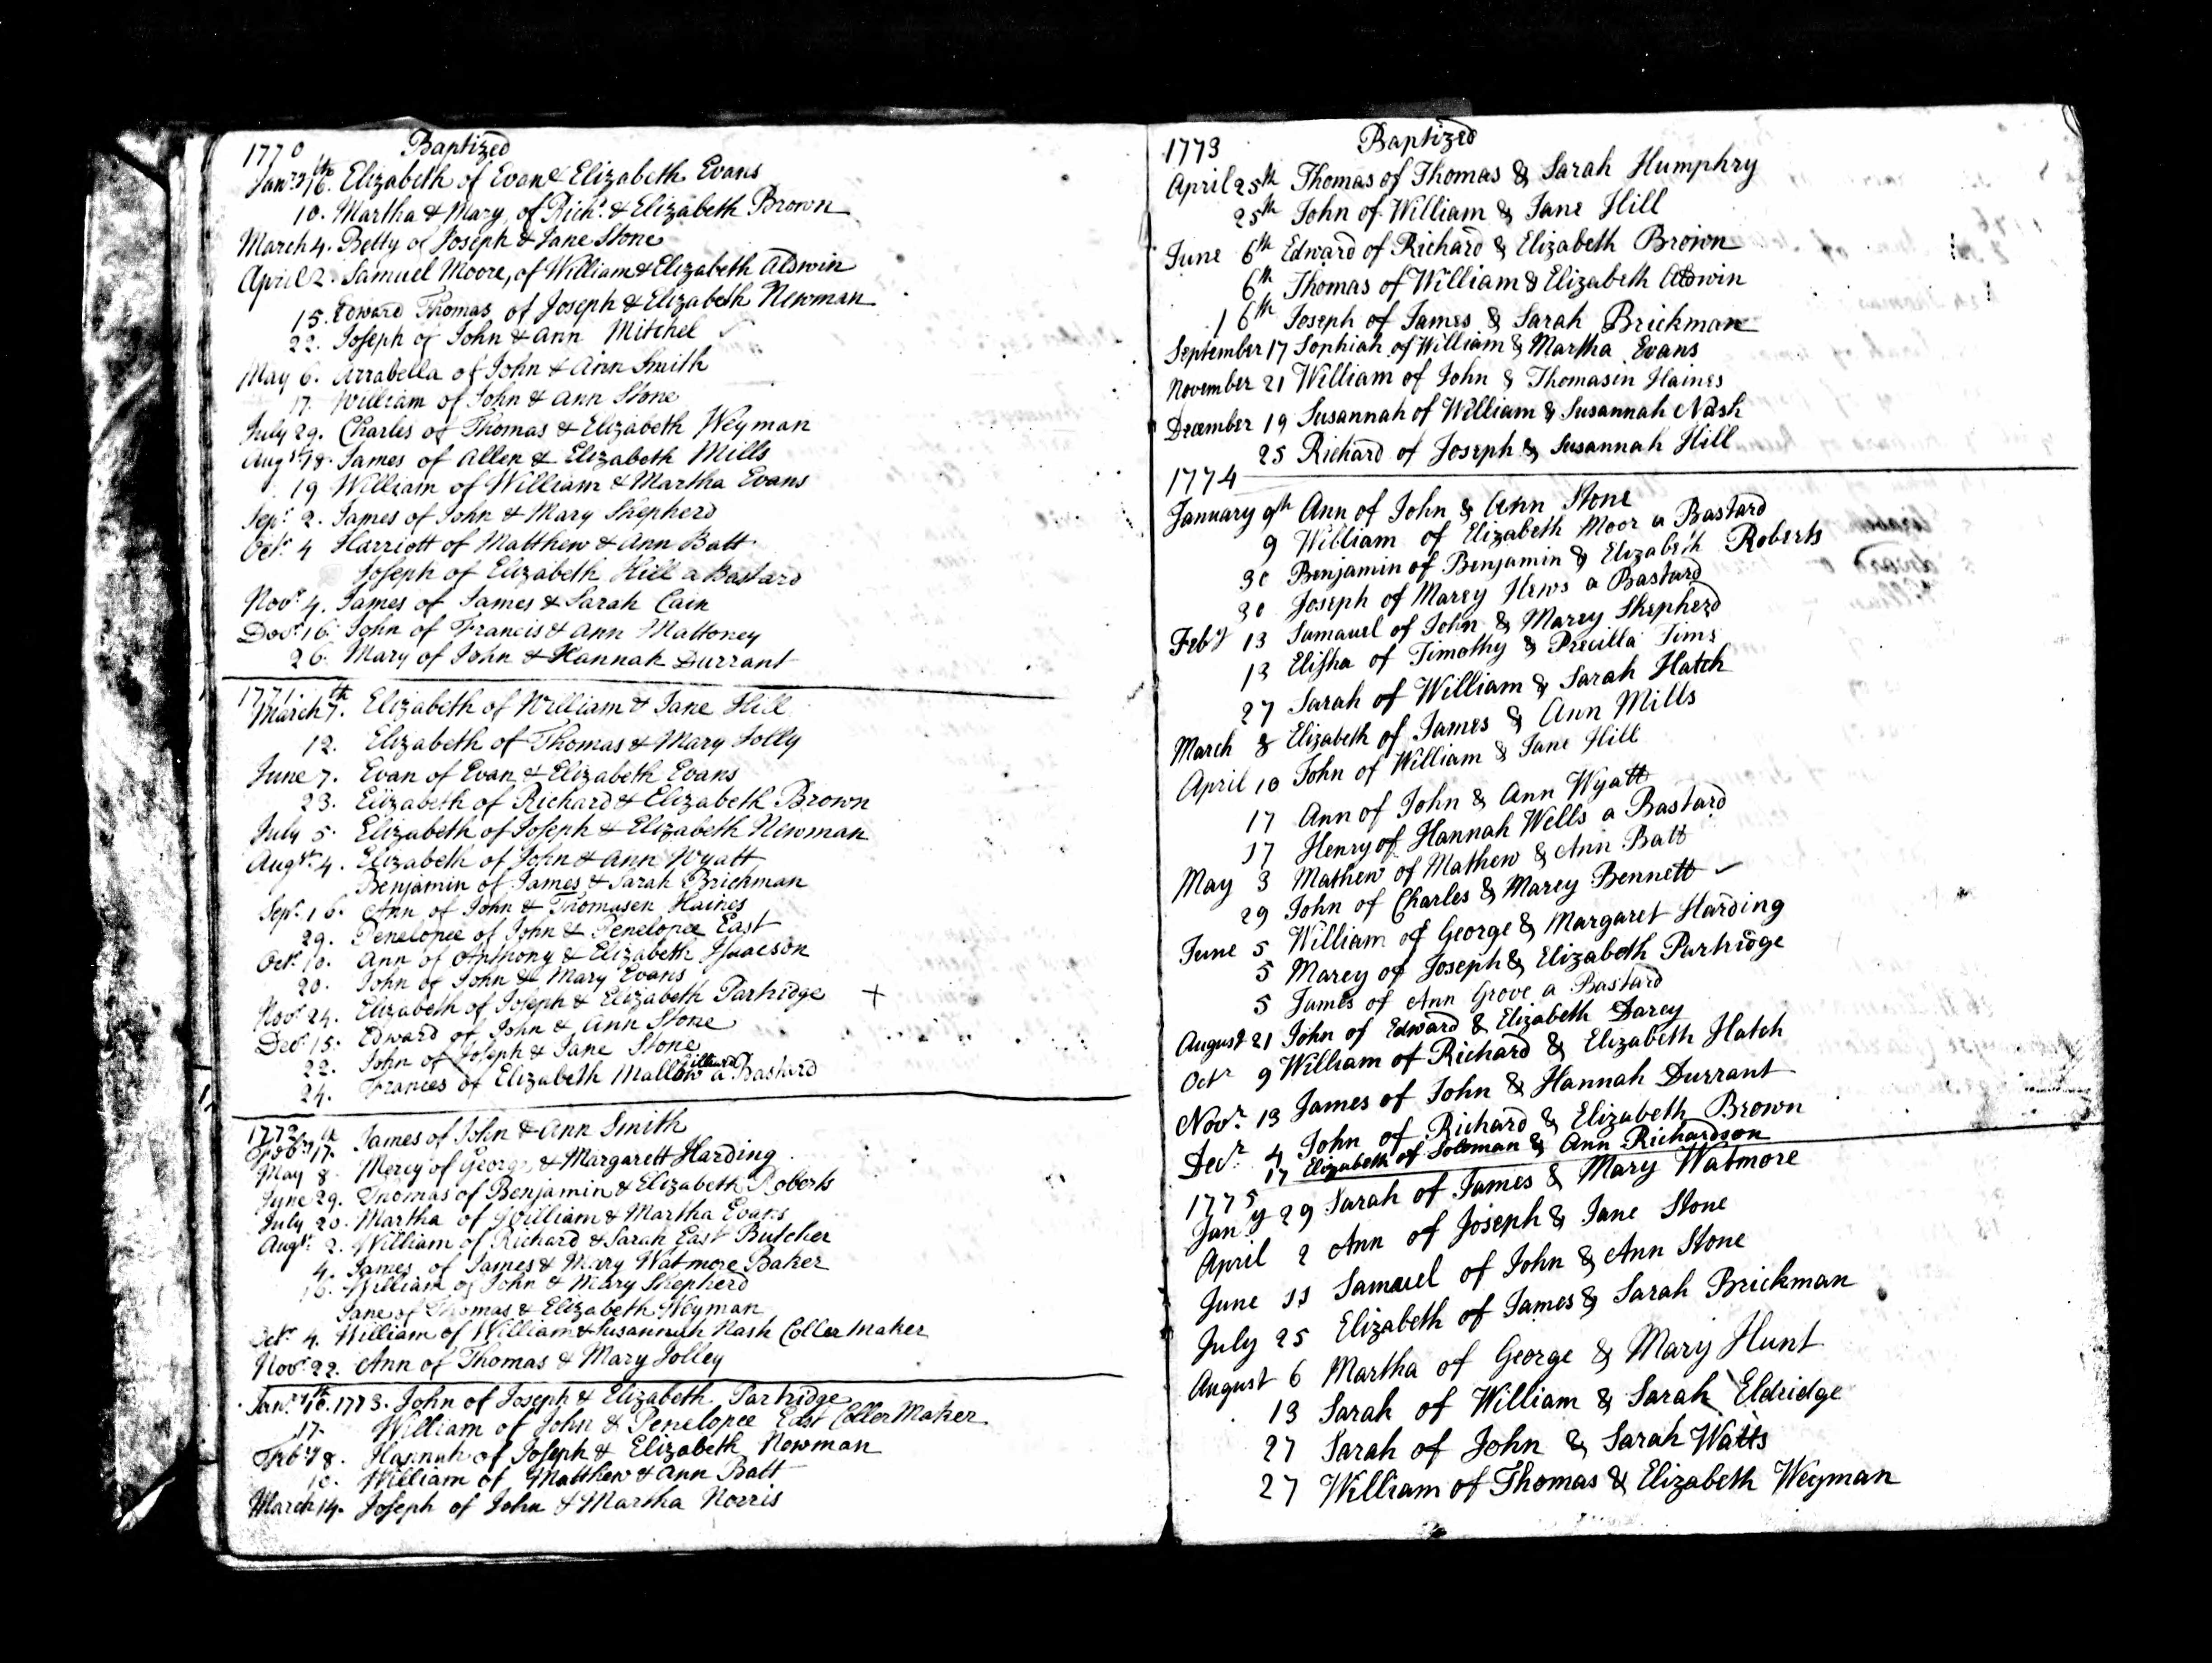 1770 Baptized
Janry 16th. Elizabeth of Evan & Elizabeth Evans
10. Martha & Mary of Richd. & Elizabeth Brown
March 4. Betty of Joseph & Jane Stone
April 2. Samuel Moore, of William & Elizabeth Aldwin
15. Edward Thomas of Joseph & Elizabeth Newman
22. Joseph of John & Ann Mitchel ✓
May 6. Arrabella of John & Ann Smith
17. William of John & Ann Stone
July 29. Charles of Thomas & Elizabeth Weyman
Augst 18. James of Allen & Elizabeth Mills
19 William of William & Martha Evans
Sepr. 2. James of John & Mary Shepherd
Octr. 4 Harriott of Matthew & Ann Batt
Joseph of Elizabeth Hill a Bastard
Novr. 4. James of James & Sarah Cain
Decr. 16. John of Francis & Ann Maltoney
26. Mary of John & Hannah Durrant
1771
March 7.th Elizabeth of William & Jane Hill
12. Elizabeth of Thomas & Mary Jolly
June 7. Evan of Evan & Elizabeth Evans
23. Elizabeth of Richard & Elizabeth Brown
July 5. Elizabeth of Joseph & Elizabeth Newman
Augst. 4. Elizabeth of John & Ann Wyatt
Benjamin of James & Sarah Brickman
Sepr. 16. Ann of John & Thomasen Haines
29. Penelopee of John & Penelopee East
Octr. 10. Ann of Anthony & Elizabeth Isaacson
20. John of John & Mary Evans
Novr. 24. Elizabeth of Joseph & Elizabeth Partridge +
Decr. 15. Edward of John & Ann Stone
22. John of Joseph & Jane Stone
24. Frances of Elizabeth Mallow a Bastard
1772
Febry 17.th James of John & Ann Smith
May 8. Mercy of George & Margarett Harding
June 29. Thomas of Benjamin & Elizabeth Roberts
July 20. Martha of William & Martha Evans
Augst. 2. William of Richard & Sarah East Butcher
4. James of James & Mary Watmore Baker
16. William of John & Mary Shepherd
Jane of Thomas & Elizabeth Weyman
Octr. 4. William of William & Susannah Nash Coller Maker
Novr. 22. Ann of Thomas & Mary Jolley
Janry 10.th 1773. John of Joseph & Elizabeth Partridge
17. William of John & Penelopee East Coller Maker
Febry 8. Hannah of Joseph & Elizabeth Newman
10. William of Matthew & Ann Batt
March 14. Joseph of John & Martha Norris
1773 Baptized
April 25th Thomas of Thomas & Sarah Humphry
25th John of William & Jane Hill
June 6th Edward of Richard & Elizabeth Brown
6th Thomas of William & Elizabeth Aldwin
16th Joseph of James & Sarah Brickman
September 17 Sophiah of William & Martha Evans
November 21 William of John & Thomasin Haines
December 19 Susannah of William & Susannah Nash
25 Richard of Joseph & Susannah Hill
1774
January 9th Ann of John & Ann Stone
9 William of Elizabeth Moor a Bastard
30 Benjamin of Benjamin & Elizabeth Roberts
30 Joseph of Marey Hews a Bastard
Feby 13 Samauel of John & Marey Shepherd
13 Elisha of Timothy & Precilla Tims
27 Sarah of William & Sarah Hatch
March 8 Elizabeth of James & Ann Mills
April 10 John of William & Jane Hill
17 Ann of John & Ann Wyatt
17 Henry of Hannah Wells a Bastard
May 3 Mathew of Mathew & Ann Batt
29 John of Charles & Marey Bennett ✓
June 5 William of George & Margaret Harding
5 Marey of Joseph & Elizabeth Partridge
5 James of Ann Grove a Bastard
August 21 John of Edward & Elizabeth Darey
Octr 9 William of Richard & Elizabeth Hatch
Novr. 13 James of John & Hannah Durrant
Decr. 4 John of Richard & Elizabeth Brown
17 Elizabeth of Soloman & Ann Richardson
1775
Jany 29 Sarah of James & Mary Watmore
April 2 Ann of Joseph & Jane Stone
June 11 Samauel of John & Ann Stone
July 25 Elizabeth of James & Sarah Brickman
August 6 Martha of George & Mary Hunt
13 Sarah of William & Sarah Eldridge
27 Sarah of John & Sarah Watts
27 William of Thomas & Elizabeth Weyman